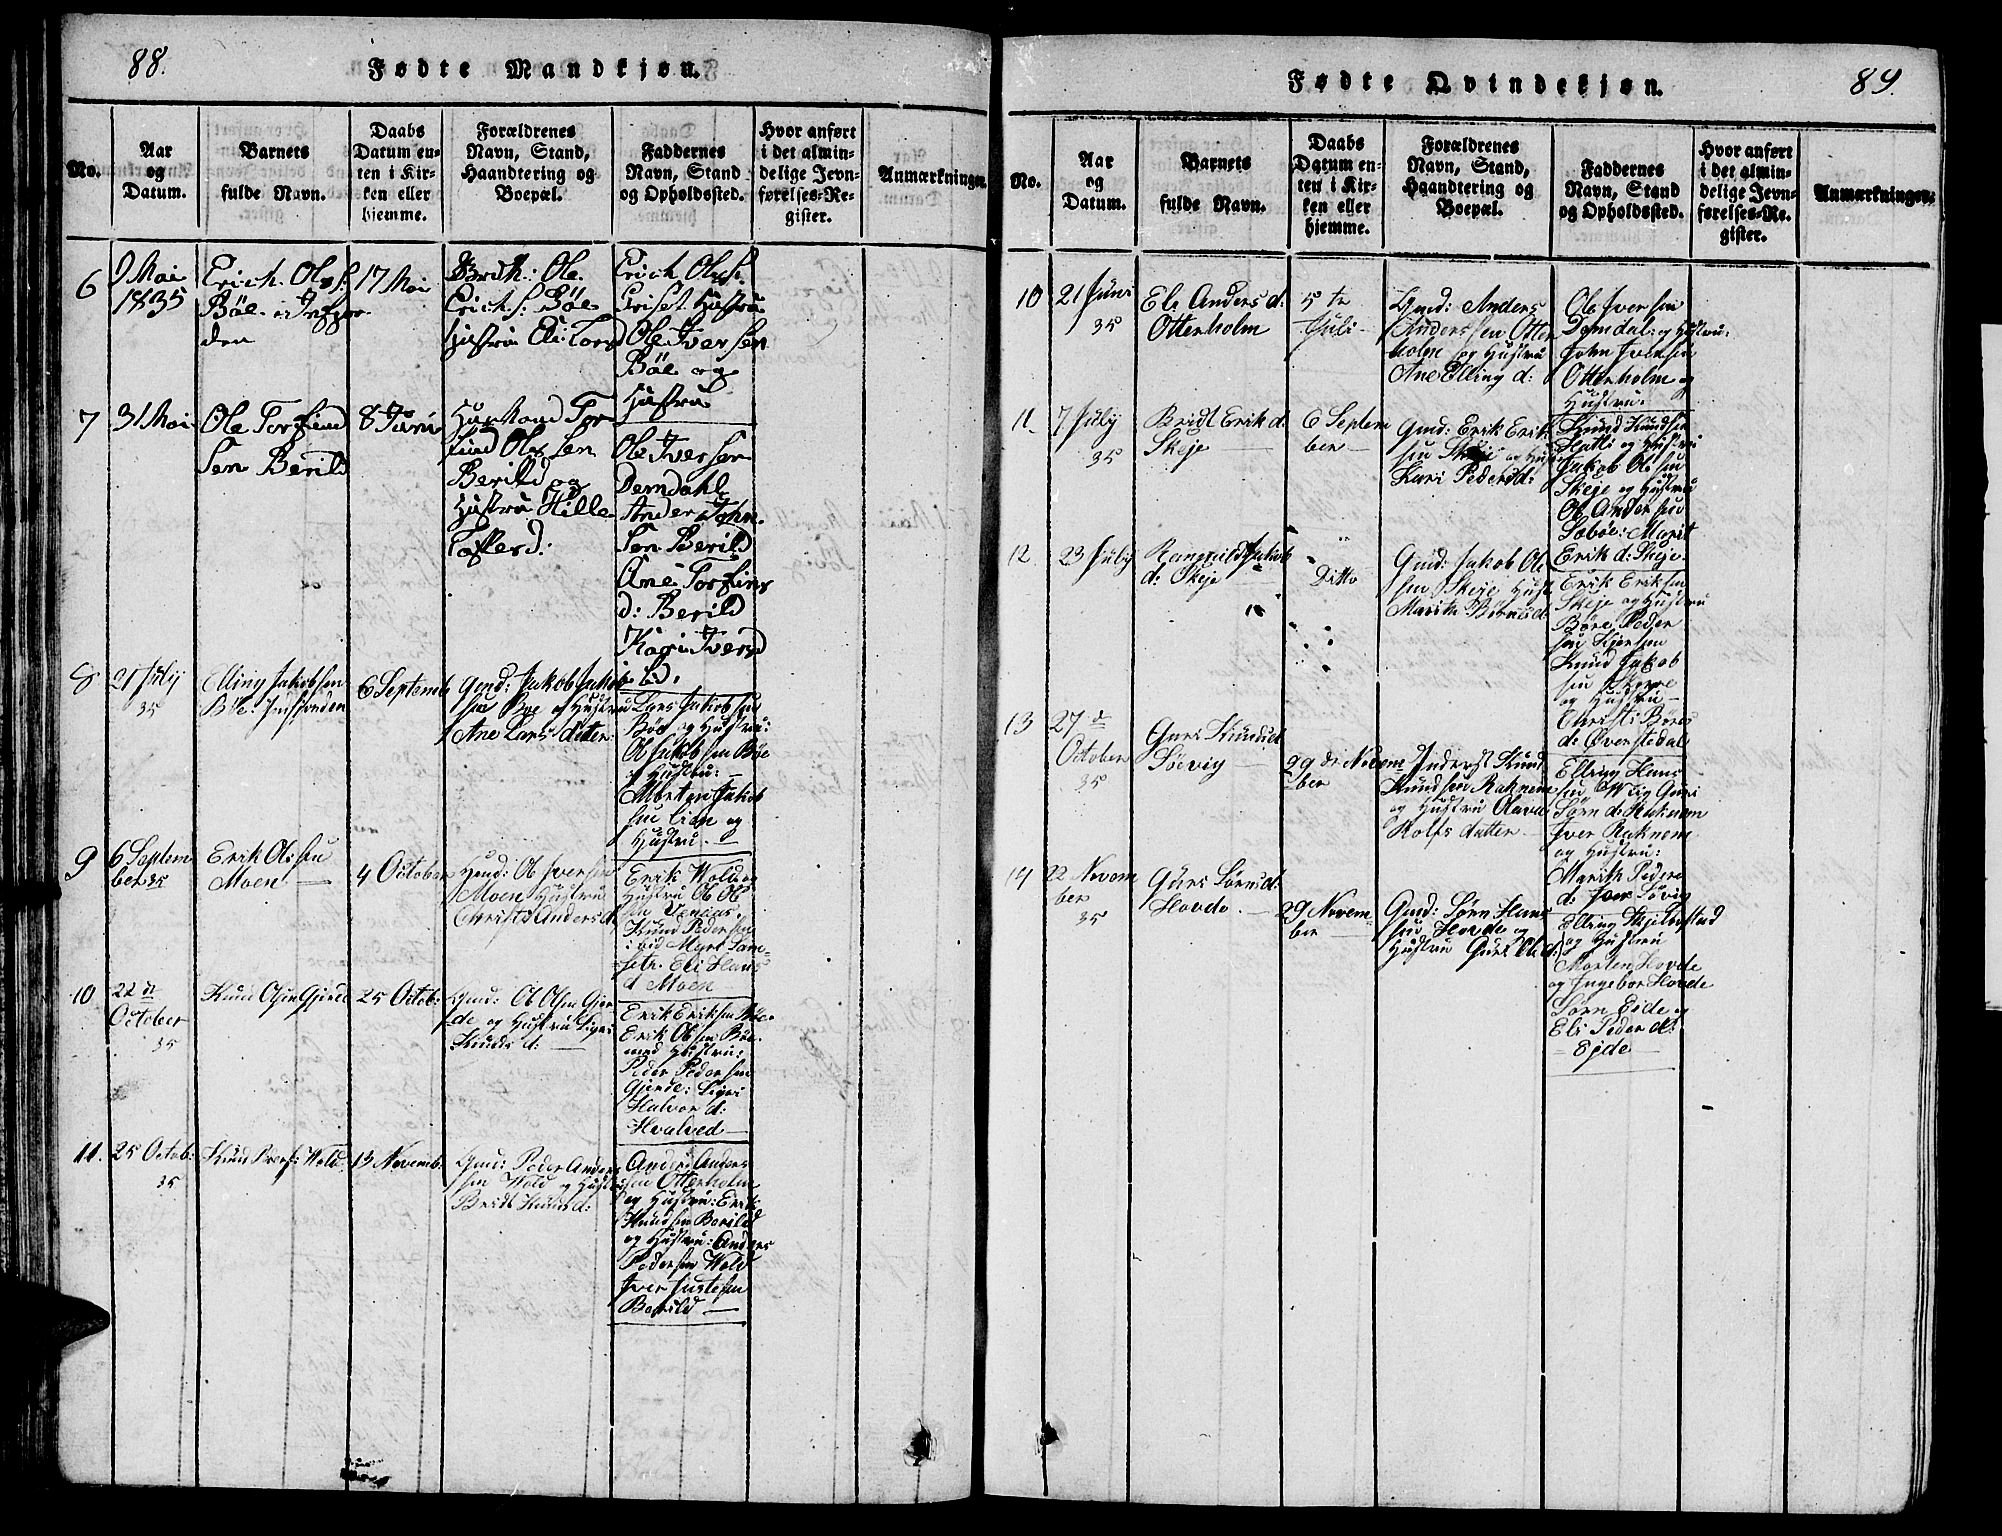 88.
Fødte Mandkjøn.
No.
Aar
og
Datum.
Barnets
fulde Navn.
Daabs
Datum en-
ten i Kir-
ken eller
hjemme.
Forældrenes
Navn, Stand,
Haandtering og
Boepæl.
Faddernes
Navn, Stand
og Opholdssted.
Hvor anført
i det almin-
delige Jevn-
førelses-Re-
gister.
Anmærkninger.
6
9 Mai
1835
Erich. Ols s:
Bøe i
den
17 Mai
Ole
Erichs: Bøe
Hustru Eli
Erich Ols s:
Hustru
Ole Iversen
Bøe og
Hustru
7
31 Mai
Ole Torfind
Sen Berild
8 Juni
Husmand Tor
find Ols Sen
Berild og
Hustru Hille
d:
Ole Iversen
Demdahl
Anders John
Sen Berild
Ane Torfins
d: Berild
Kari Ivers d
8
21 July
35
Elling Jakobsen
Bøe
6 Septemb
Gmd: Jakob Jakob
sen Bøe og Hustru
Ane Lars datter:
Lars Jakobsen
Bøe og Hustru:
Ole Jakobsen Bøe
og Hustru: —
Morten Jakob
sen Lien og
Hustru. —
9
6 Septem
ber 35
Erik Olsen
Moen —
4 October
Ole Iversen
Moen Hustru
Anders d:
Erik Wold og
Hustru Ole Ol
sen
Knud Pedersen
Eli Hans
d Moen
10
22 de
October
35
Knud Olsen Gjerde
25 Octob:
Gmd: Ole Olsen Gjer
de og Hustru Sigri
Knuds d: —
Erik Eriksen Bøe
Erik Olsen Bøe
med Hustru:
Peder Pedersen
Gjerde: Sigri
Halvor d:
Hvalved —
11.
25 Octob:
35
Knud Peders: Wold
13 Novemb.
Gmd: Peder Anders
sen Wold og Hustru
Bridt Knud d:
Anders Anders
sen Otterholm
og Hustru: Erik
Knudsen Berild
og Hustru: Anders
Pedersen Wold
Iver Justesen
Berild —
89.
Fødte Qvindekjøn.
No.
Aar
og
Datum.
Barnets
fulde Navn.
Daabs
Datum en-
ten i Kir-
ken eller
hjemme.
Forældrenes
Navn, Stand,
Haandtering og
Boepæl.
Faddernes
Navn, Stand
og Opholdssted.
Hvor anført
i det almin-
delige Jevn-
førelses-Re-
gister.
Anmærkninger.
10
21 Juni
35
Eli Anders d:
Otterholm
5 te
Juli —
Gmd: Anders
Anderssen Otter
holm og Hustru
Ane Elling d:
Ole Iversen
Demdal: og Hustru:
John Iversen
Otterholm og
Hustru:
11
7 July
35
Bridt Erik d:
Skeje —
6 Septem
ber —
Gmd: Erik Erik
sen Skeje og Hustru
Kari Peders d:
Knud Knudsen
og Hustru
Jakob Olsen
Skeje og Hustru
Ole Andersen
Søbøe: Marit
Erik d: Skeje
12
23 July
Rangnild Jakob
d: Skeje —
Ditto
Gmd: Jakob Ol
sen Skeje Hust
Marith Børnes d:
Erik Eriksen
Skeje og Hustru
Børe Peder
sen
Knud Jakob
sen
og Hustru —
Christi Børes
d: Øverstedal
13
27 de
October
35
Guri Knud d
Søevig —
29 de Novem
ber
Inderst Knud
Knudsen Raknem
og Hustru Olava
Rolfs datter —
Elling Hans
sen Wiig Guri
Sørn d: Raknem
Iver Raknem
og Hustru:
Marith Peder
d: Søvig
14
22 Novem
ber
35
Guri Sørns d:
Hovde. —
29 Novem
ber —
Gmd: Sørn Hans
sen Hovde og
Hustru Guri Ole d:
Elling Skjelbostad
og Hustru
Morten Hovde
og Ingebor Hovde
Sørn Eide og
Eli Peder d:
— Ejde —